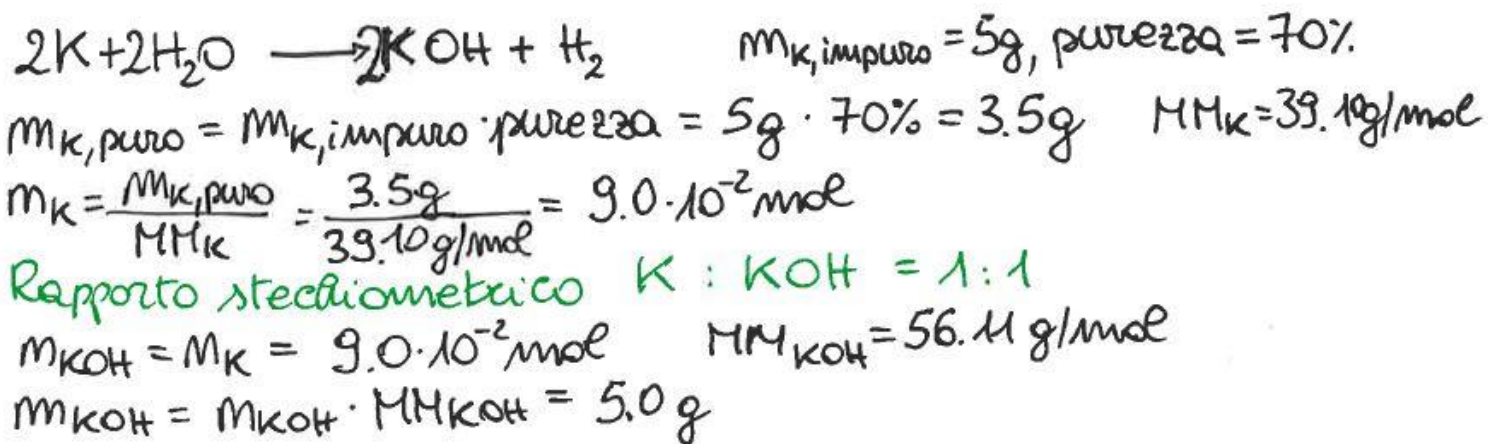 2K+2H₂O ⟶ 2KOH + H₂ m_K,impuro = 5g, purezza = 70%
m_K,puro = m_K,impuro · purezza = 5g · 70% = 3.5g MM_K = 39.10g/mol
n_K = m_K,puro / MM_K = 3.5g / 39.10g/mol = 9.0·10⁻² mol
Rapporto stechiometrico K : KOH = 1:1
n_KOH = n_K = 9.0·10⁻² mol MM_KOH = 56.11 g/mol
m_KOH = n_KOH · MM_KOH = 5.0 g